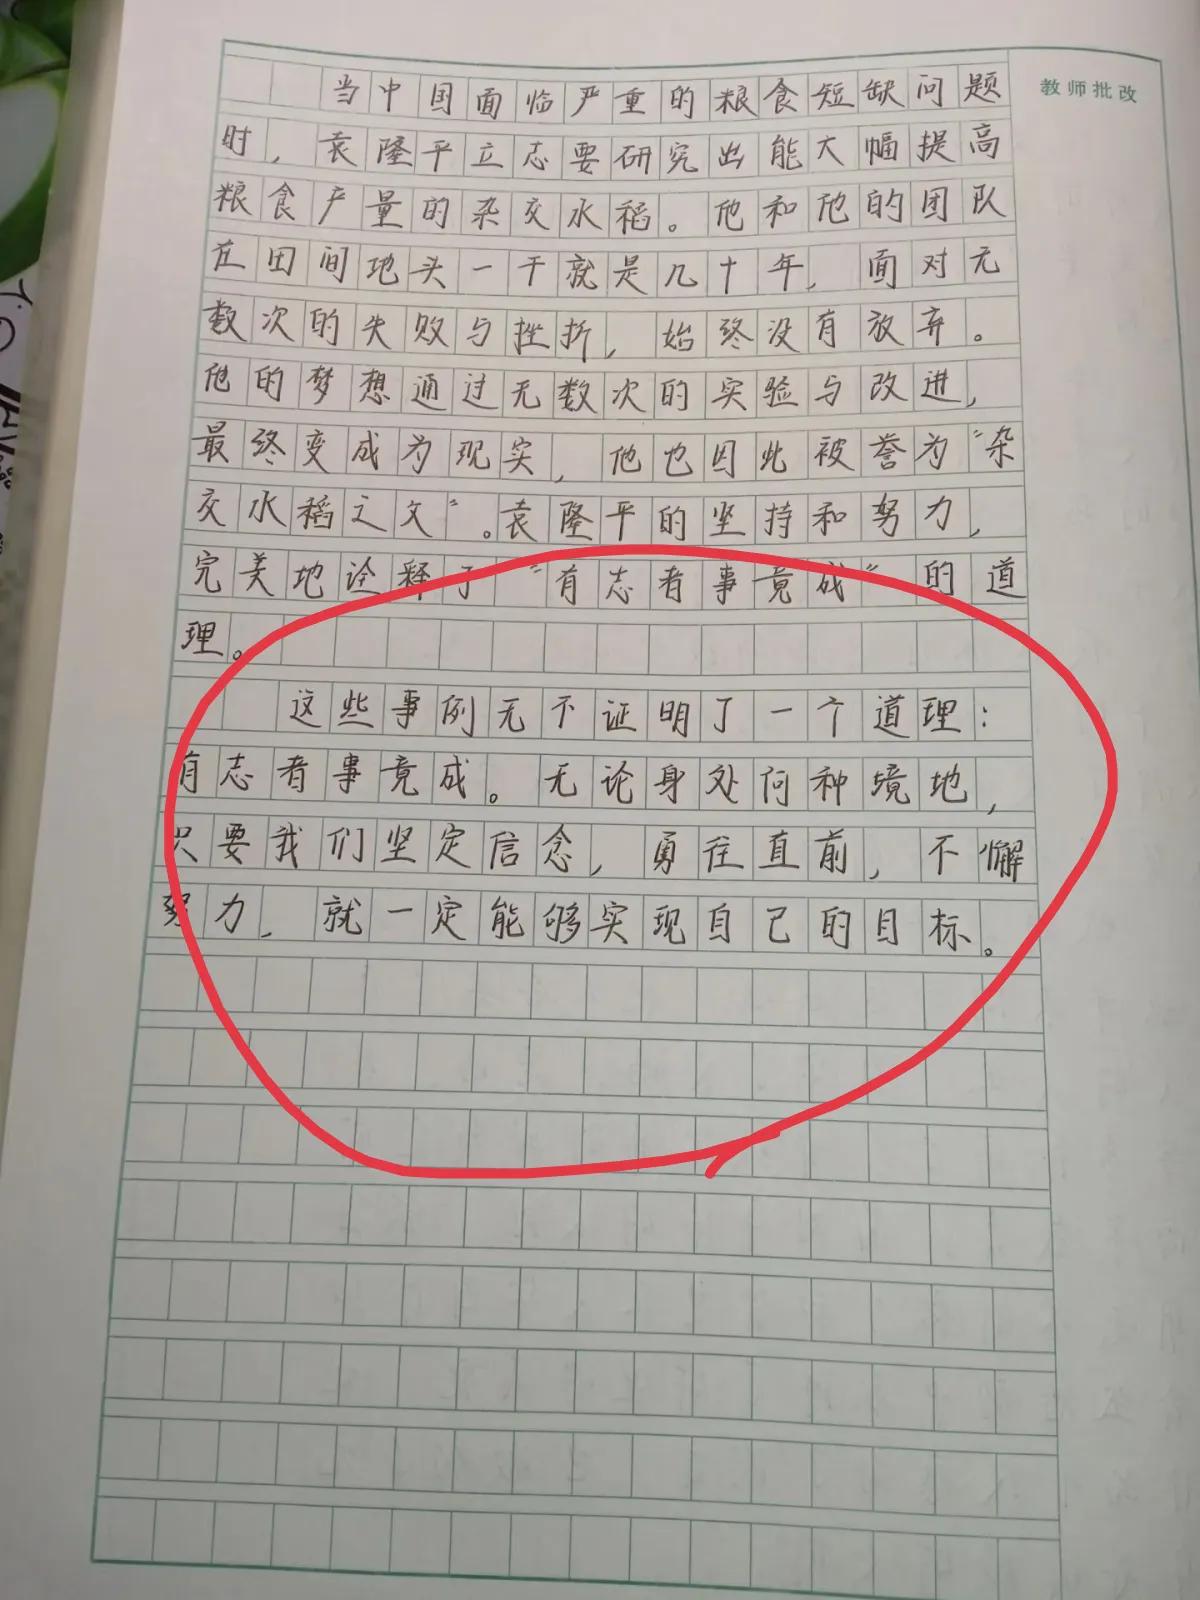 教师批改
当中国面临严重的粮食短缺问题
时，袁隆平立志要研究出能大幅提高
粮食产量的杂交水稻。他和他的团队
在田间地头一干就是几十年，面对无
数次的失败与挫折，始终没有放弃。
他的梦想通过无数次的实验与改进，
最终变成为现实，他也因此被誉为“杂
交水稻之父”。袁隆平的坚持和努力，
完美地诠释了“有志者事竟成”的道
理。
这些事例无不证明了一个道理：
有志者事竟成。无论身处何种境地，
只要我们坚定信念，勇往直前，不懈
努力，就一定能够实现自己的目标。